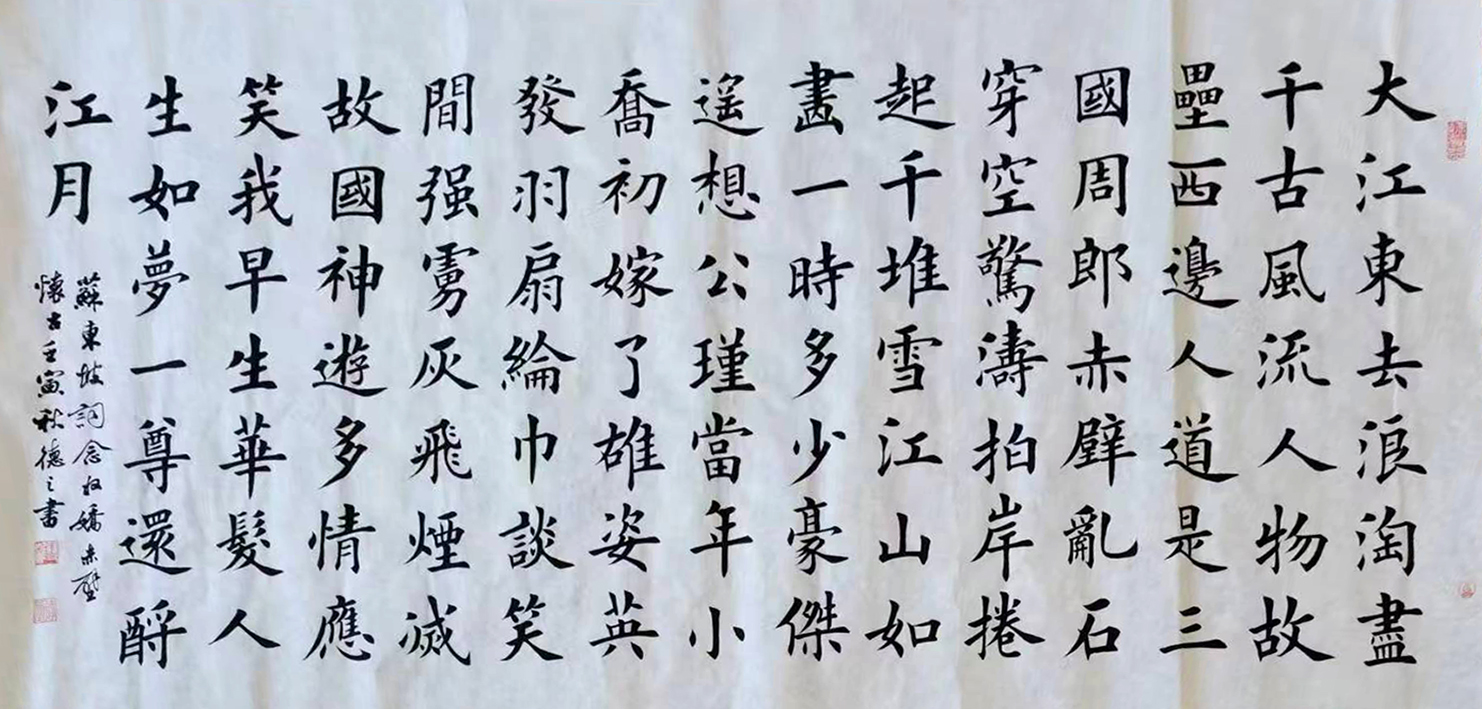 大江東去浪淘盡
千古風流人物故
壘西邊人道是三
國周郎赤壁亂石
穿空驚濤拍岸捲
起千堆雪江山如
畫一時多少豪傑
遥想公瑾當年小
喬初嫁了雄姿英
發羽扇綸巾談笑
間强虜灰飛煙滅
故國神遊多情應
笑我早生華髮人
生如夢一尊還酹
江月
蘇東坡詞念奴嬌赤壁
懷古壬寅秋德之書